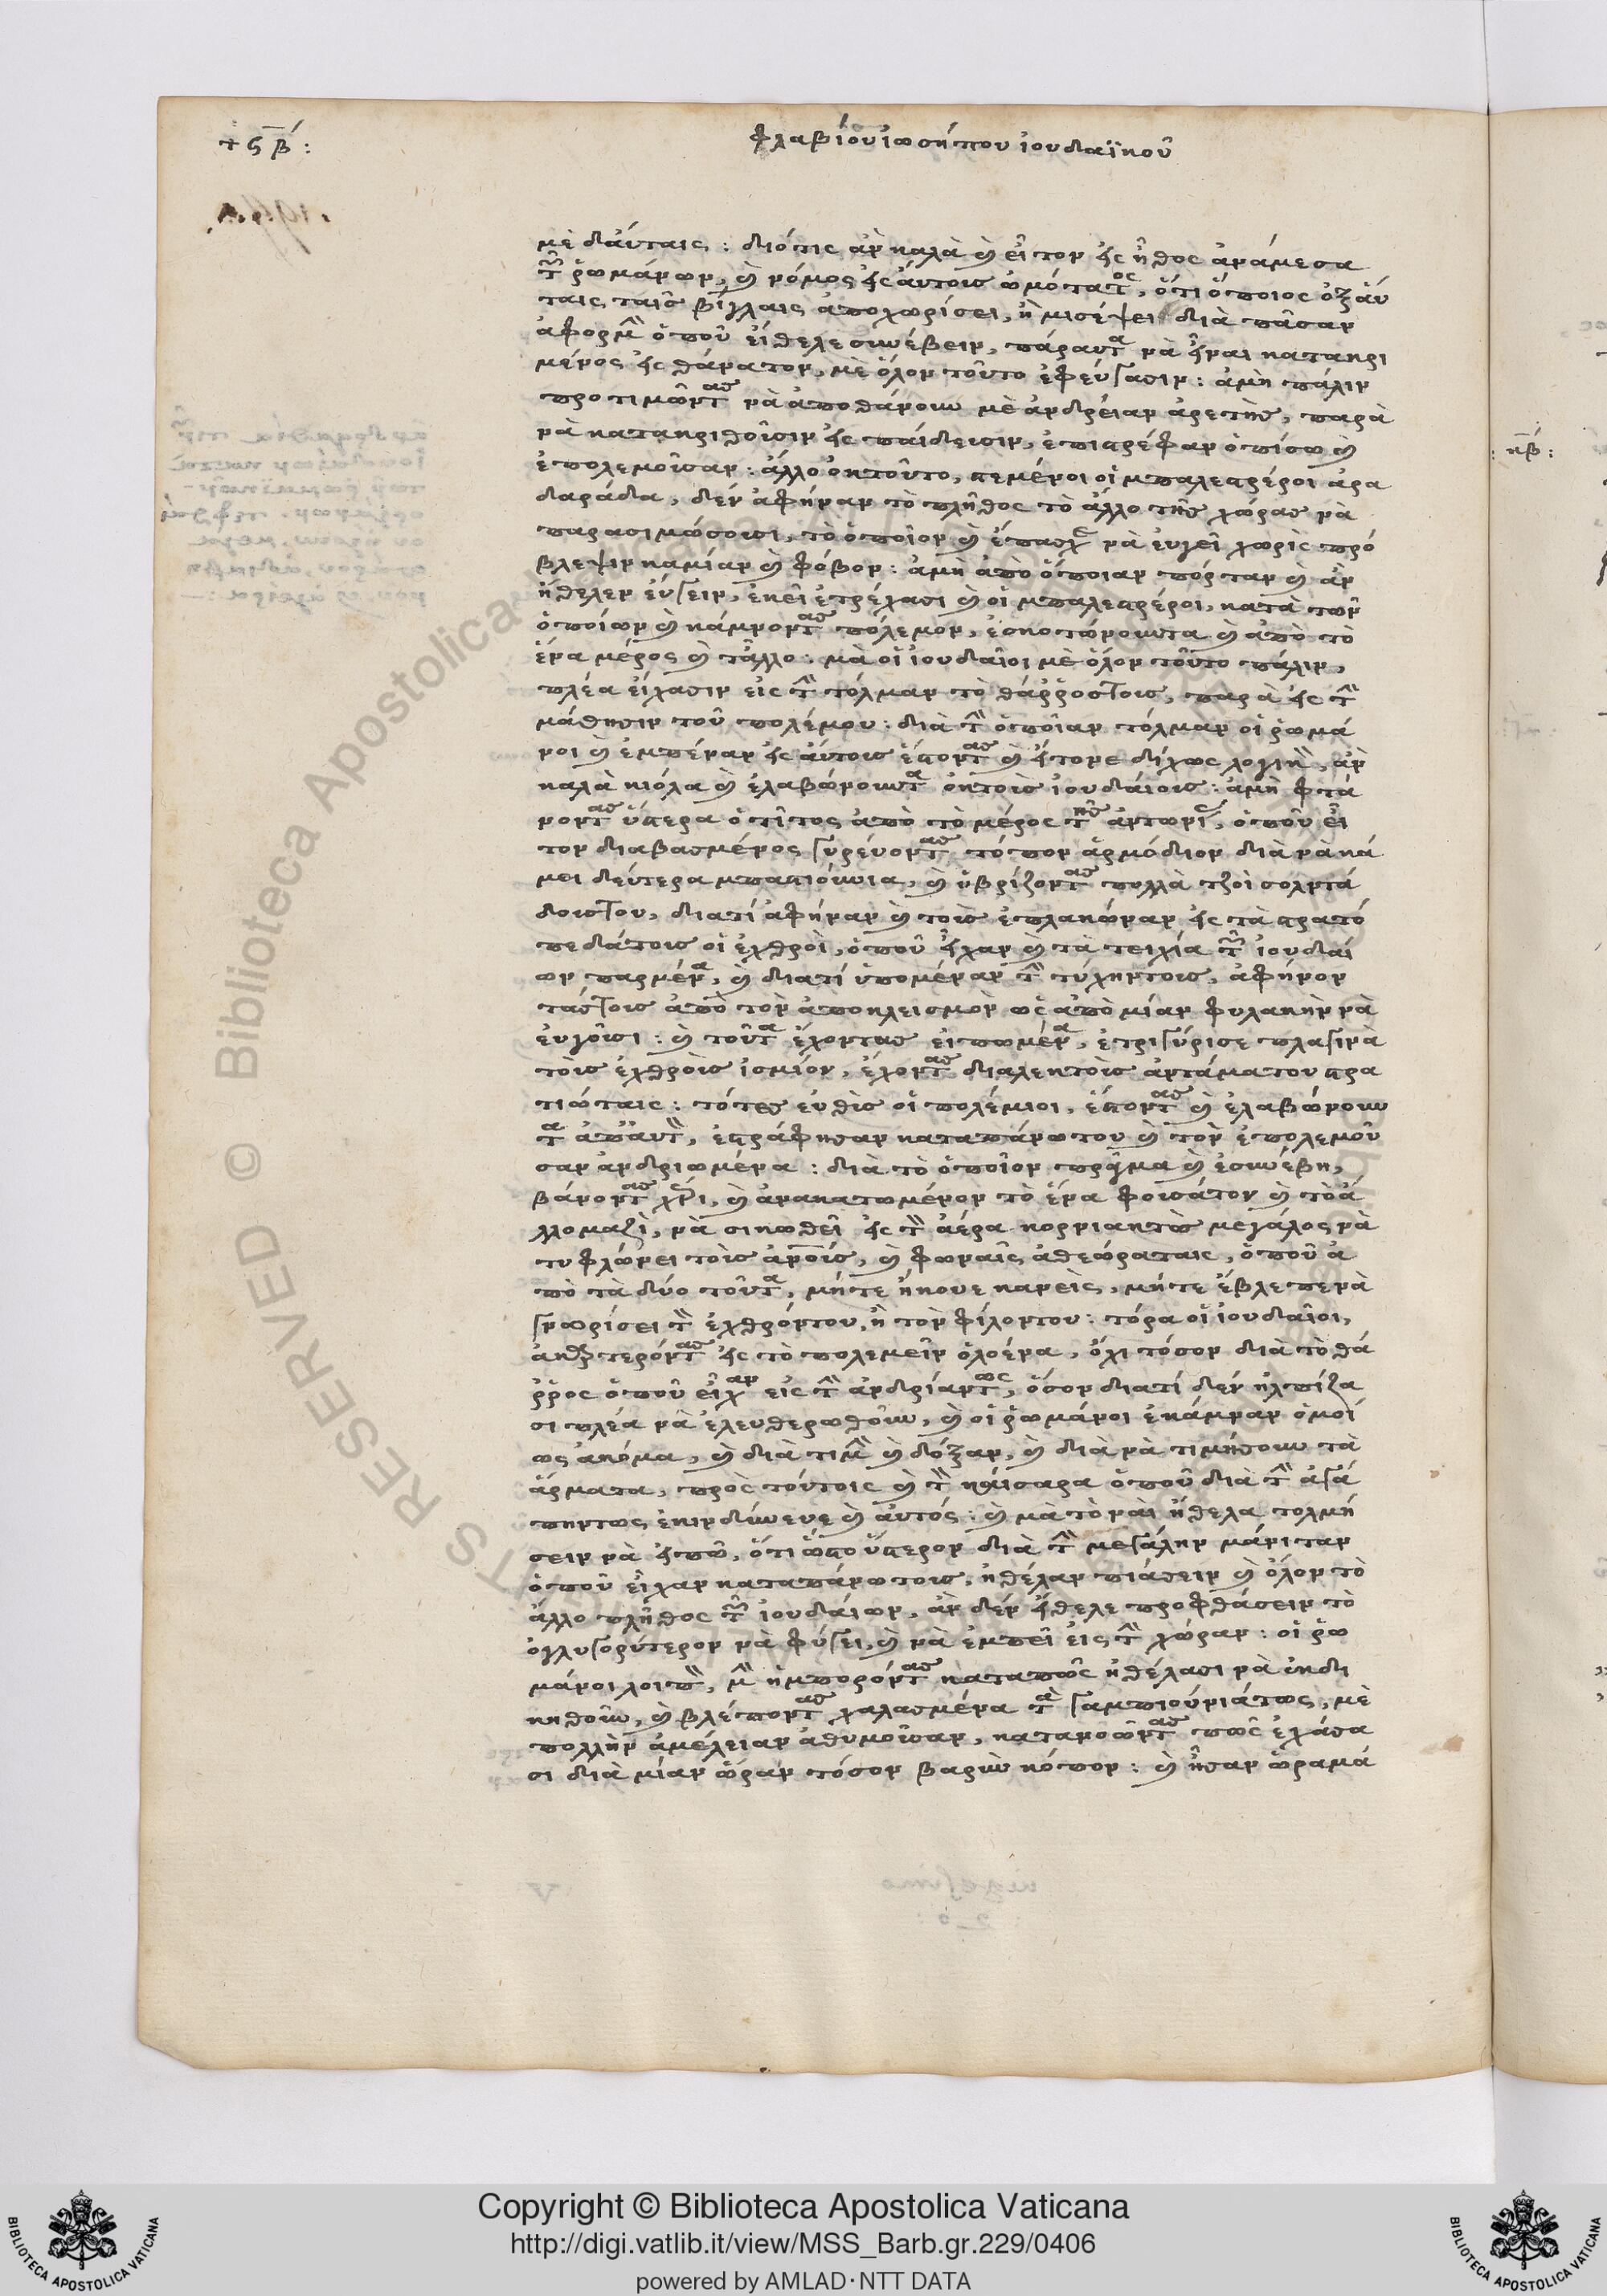 ϛβ:
φλαβίου ἰωσήπου ἰουδαϊκοῦ
μὲ δαύταις: διότις ἀν καλὰ καὶ εἶτον εἰς ἦθος ἀνάμεσα
τῶν ῥωμάνων, καὶ νόμος εἰς αὐτοὺς ὠμότατος, ὅτι ὅποιος ὀξ αὐ
ταις ταῖς βίγλαις ἀποχωρίσει, ἢ μισέψει διὰ πᾶσαν
ἀφορμὴν ὁποῦ εἴθελε συνέβειν, πάραυτα νὰ εἶναι κατακρι
μένος εἰς θάνατον, μὲ ὅλον τοῦτο ἐφεύγασιν: ἀμὴ πάλιν
προτιμῶντας νὰ ἀποθάνουν μὲ ἀνδρείαν ἀρετῆς, παρὰ
νὰ κατακριθοῦσιν εἰς παίδευσιν, ἐπιστρέφαν ὀπίσω καὶ
ἐπολεμοῦσαν: ἄλλο ὀκ τοῦτο, στεμένοι οἱ μπαλεστρέροι ἀρα
δαράδα, δὲν ἀφήναν τὸ πλῆθος τὸ ἄλλο τῆς χώρας νὰ
παρασιμώσουσι, τὸ ὁποῖον καὶ ἔπασχε νὰ ἐυγεῖ χωρὶς πρό
βλεψιν καμίαν καὶ φόβον: ἀμὴ ἀπὸ ὅποιαν πόρταν καὶ ἀν
ἤθελεν εὔγειν, ἐκεῖ ἐτρέχασι καὶ οἱ μπαλεστρέροι, κατὰ τῶν
ὁποίων καὶ κάμνοντας πόλεμον, ἐσκοτώνουντα καὶ ἀπὸ τὸ
ἕνα μέρος καὶ τἄλλο: μὰ οἱ ἰουδαῖοι μὲ ὅλον τοῦτο πάλιν,
πλέα εἴχασιν εἰς τὴν τόλμαν τὸ θάῤῥοςτους, παρὰ εἰς τὴν
μάθησιν τοῦ πολέμου: διὰ τὴν ὁποῖαν τόλμαν οἱ ῥωμά
νοι καὶ ἐμπέναν εἰς αὐτοὺς ἔστοντας καὶ εἴτονε δίχως λογικὴν, ἀν
καλὰ κιόλα καὶ ἐλαβώνουντα ὀκ τοὺς ἰουδαίους: ἀμὴ φτά
νοντας ὕστερα ὁ τῖτος ἀπὸ τὸ μέρος τῆς ἀντωνίας, ὁποῦ εἶ
τον διαβασμένος γυρεύοντας τόπον ἁρμόδιον διὰ νὰ κά
μει δεύτερα μπαστιόνια, καὶ ὑβρίζοντας πολλὰ τζοὶ σολντά
δουςτου, διατί ἀφήναν καὶ τοὺς ἐπλακώναν εἰς τὰ στρατό
πεδάτους οἱ ἐχθροὶ, ὁποῦ εἶχαν καὶ τὰ τειχία τῶν ἰουδαί
ων παρμένα, καὶ διατί ὑπομέναν τὴν τύχηντους, ἀφήνον
τάςτους ἀπὸ τὸν ἀποκλεισμὸν ὡς ἀπὸ μίαν φυλακὴν νὰ
ἐυγοῦσι: καὶ τοῦτα ἔχοντας εἰπωμένα, ἐτριγύρισε πλαγινὰ
τοὺς ἐχθροὺς ἰσμιόν, ἔχοντας διαλεκτοὺς ἀντάματου στρα
τιώταις: τότες εὐθὺς οἱ πολέμιοι, ἔστοντας καὶ ἐλαβώνουν
τα ἀπ αυτὴν, ἐστράφησαν καταπάνωτου καὶ τὸν ἐπολεμοῦ
σαν ἀνδριωμένα: διὰ τὸ ὁποῖον πρᾶγμα καὶ ἐσυνέβη,
βάνοντας χέρι, καὶ ἀνακατωμένον τὸ ἕνα φουσάτον καὶ τὸ ἄ
λλο μαζὶ, νὰ σικωθεῖ εἰς τὸν ἀέρα κορνιακτὸς μεγάλος νὰ
τυφλώνει τοὺς ἀνους, καὶ φωναῖς ἀθεώραταις, ὁποῦ ἀ
πὸ τὰ δύο τοῦτα, μήτε ἤκουε κανεὶς, μήτε ἔβλεπε νὰ
γνωρίσει τὸν ἐχθρόντου, ἢ τὸν φίλοντου: τόρα οἱ ἰουδαῖοι,
ἀκαρτερόντας εἰς τὸ πολεμεῖν ὁλοένα, ὄχι τόσον διὰ τὸ θά
ῤῥος ὁποῦ εἶχαν εἰς τὴν ἀνδρίαντως, ὅσον διατί δὲν ἠλπίζα
σι πλέα νὰ ἐλευθερωθοῦν, καὶ οἱ ῥωμάνοι ἐκάμναν ὁμοί
ως ἀκόμα, καὶ διὰ τιμὴν καὶ δόξαν, καὶ διὰ νὰ τιμήσουν τὰ
ἄρματα, πρὸς τούτοις καὶ τὸν καίσαρα ὁποῦ διὰ τὴν ἀγά
πηντως ἐκινδύνευε καὶ αὐτός: καὶ μὰ τὸ ναὶ ἤθελα τολμή
σειν νὰ εἰπῶ, ὅτι ὥστο ὕστερον διὰ τὴν μεγάλην μάνιταν
ὁποῦ εἶχαν καταπάνωτους, ἠθέλαν πιάσειν καὶ ὅλον τὸ
ἄλλο πλῆθος τῶν ἰουδαίων, ἀν δὲν εἴθελε προφθάσειν τὸ
ὀγλυγορύτερον νὰ φύγει, καὶ νὰ ἐμπεῖ εἰς τὴν χώραν: οἱ ῥω
μάνοι λοιπὸν, μὴν ἠμπορόντας καταπῶς ἠθέλασι νὰ ἐκδι
κηθοῦν, καὶ βλέποντας χαλασμένα τὰ γαμπιούνιάτως, μὲ
πολλὴν ἀμέλειαν ἀθυμοῦσαν, κατανοῶντας πῶς ἐχάσα
σι διὰ μίαν ὥραν τόσον βαρὺν κόπον: καὶ ἦσαν ὥραμά
κβ:
Copyright © Biblioteca Apostolica Vaticana
http://digi.vatlib.it/view/MSS_Barb.gr.229/0406
powered by AMLAD·NTT DATA